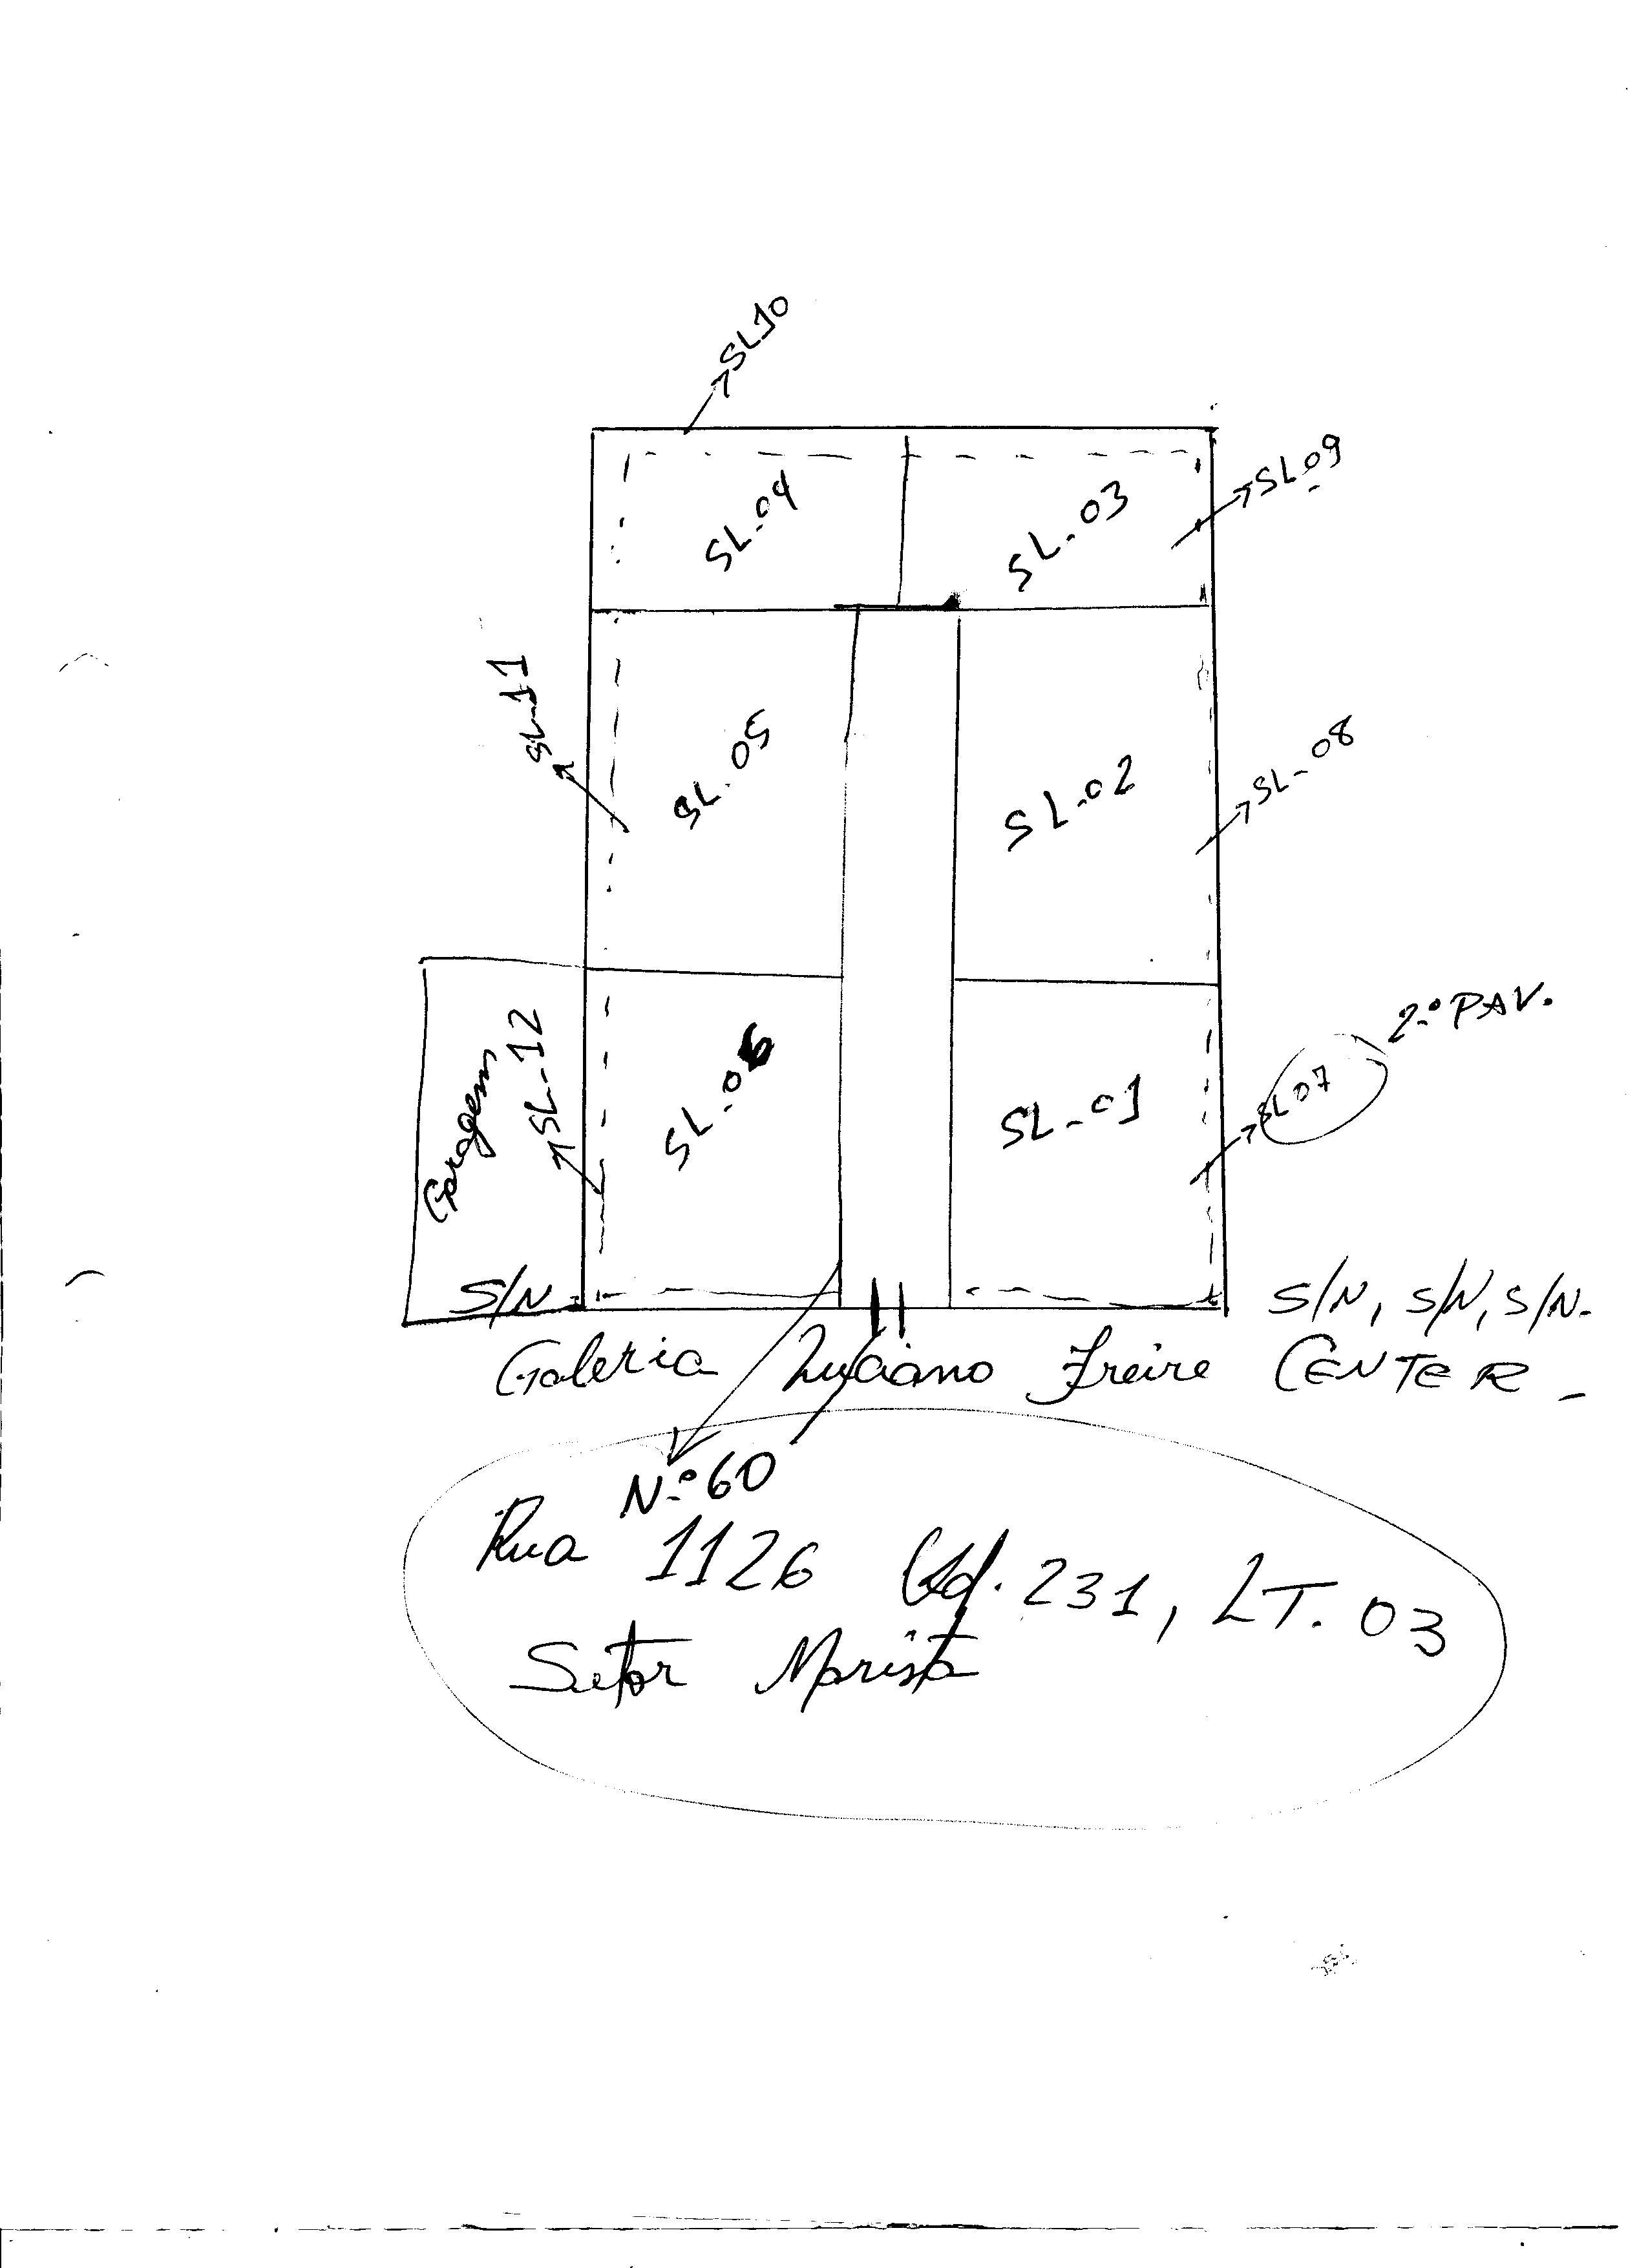 SL10
SL-04
SL-03
SL-09
SL-11
SL-05
SL-02
SL-08
2.º PAV.
Garagem
SL-12
SL-06
SL-01
SL07
S/N
S/N, S/N, S/N.
Galeria Luciano Freire CENTER
N.º 60
Rua 1126 Qd. 231, LT. 03
Setor Marista